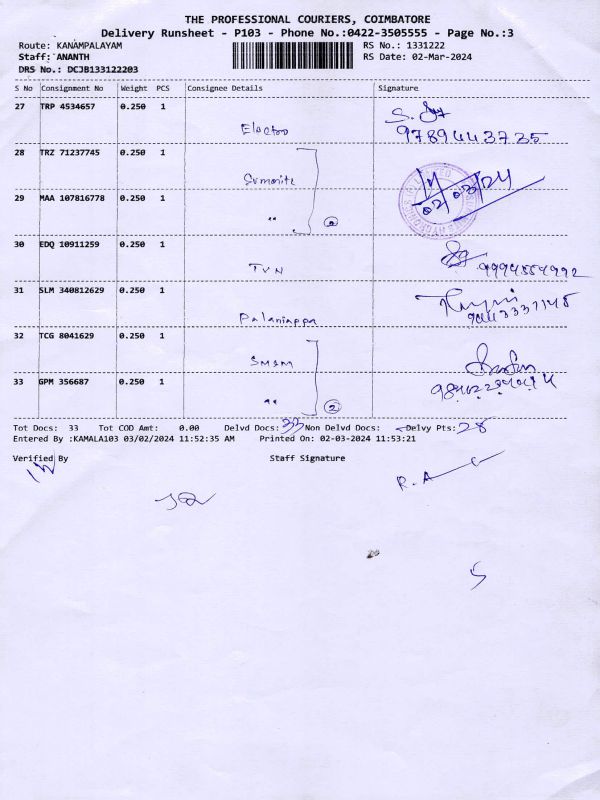 THE PROFESSIONAL COURIERS, COIMBATORE
Delivery Runsheet - P103 - Phone No.:0422-3505555 - Page No.:3
Route: KANAMPALAYAM RS No.: 1331222
Staff: ANANTH RS Date: 02-Mar-2024
DRS No.: DCJB133122203
S No Consignment No Weight PCS Consignee Details Signature
27 TRP 4534657 0.250 1
Electro 9789443735
28 TRZ 71237745 0.250 1
02/03/24
29 MAA 107816778 0.250 1
" 2
30 EDQ 10911259 0.250 1
TVN 9994854992
31 SLM 340812629 0.250 1
Palaniappa
32 TCG 8041629 0.250 1
SMSM
33 GPM 356687 0.250 1
" 2
Tot Docs: 33 Tot COD Amt: 0.00 Delvd Docs: 33 Non Delvd Docs: - Delvy Pts: 28
Entered By :KAMALA103 03/02/2024 11:52:35 AM Printed On: 02-03-2024 11:53:21
Verified By Staff Signature
R. A